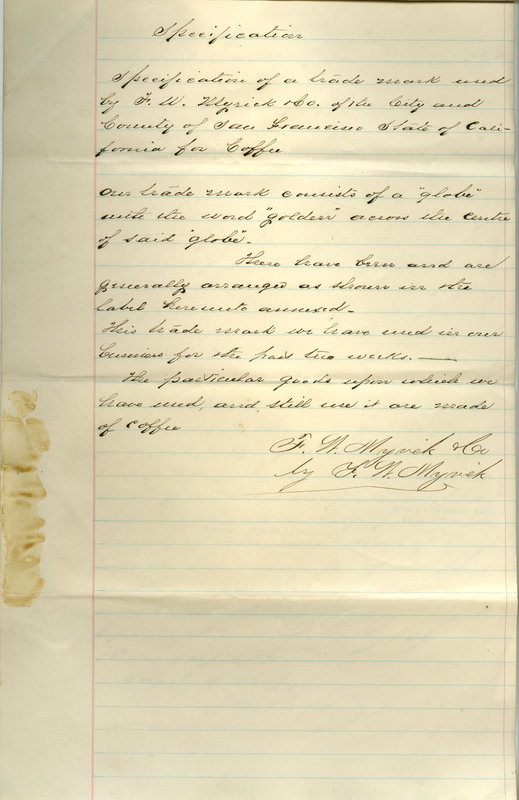 Specification
Specification of a trade mark used
by F. W. Myrick & Co. of the City and
County of San Francisco State of Cali-
fornia for Coffee
Our trade mark consists of a "globe"
with the word "golden" across the centre
of said "globe".
These have been and are
generally arranged as shown in the
label hereunto annexed.
This trade mark we have used in our
business for the past two weeks.
The particular goods upon which we
have used, and still use it are made
of coffee
F. W. Myrick & Co
by F. W. Myrick